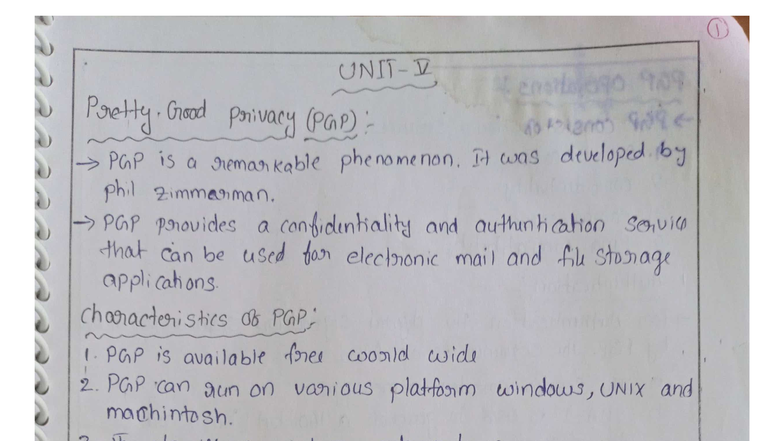 1
UNIT-V
Pretty Good Privacy (PGP):-
→ PGP is a remarkable phenomenon. It was developed by
phil zimmerman.
→ PGP provides a confidentiality and authentication service
that can be used for electronic mail and file storage
applications.
Characteristics of PGP:
1. PGP is available free world wide
2. PGP can run on various platform windows, UNIX and
machintosh.